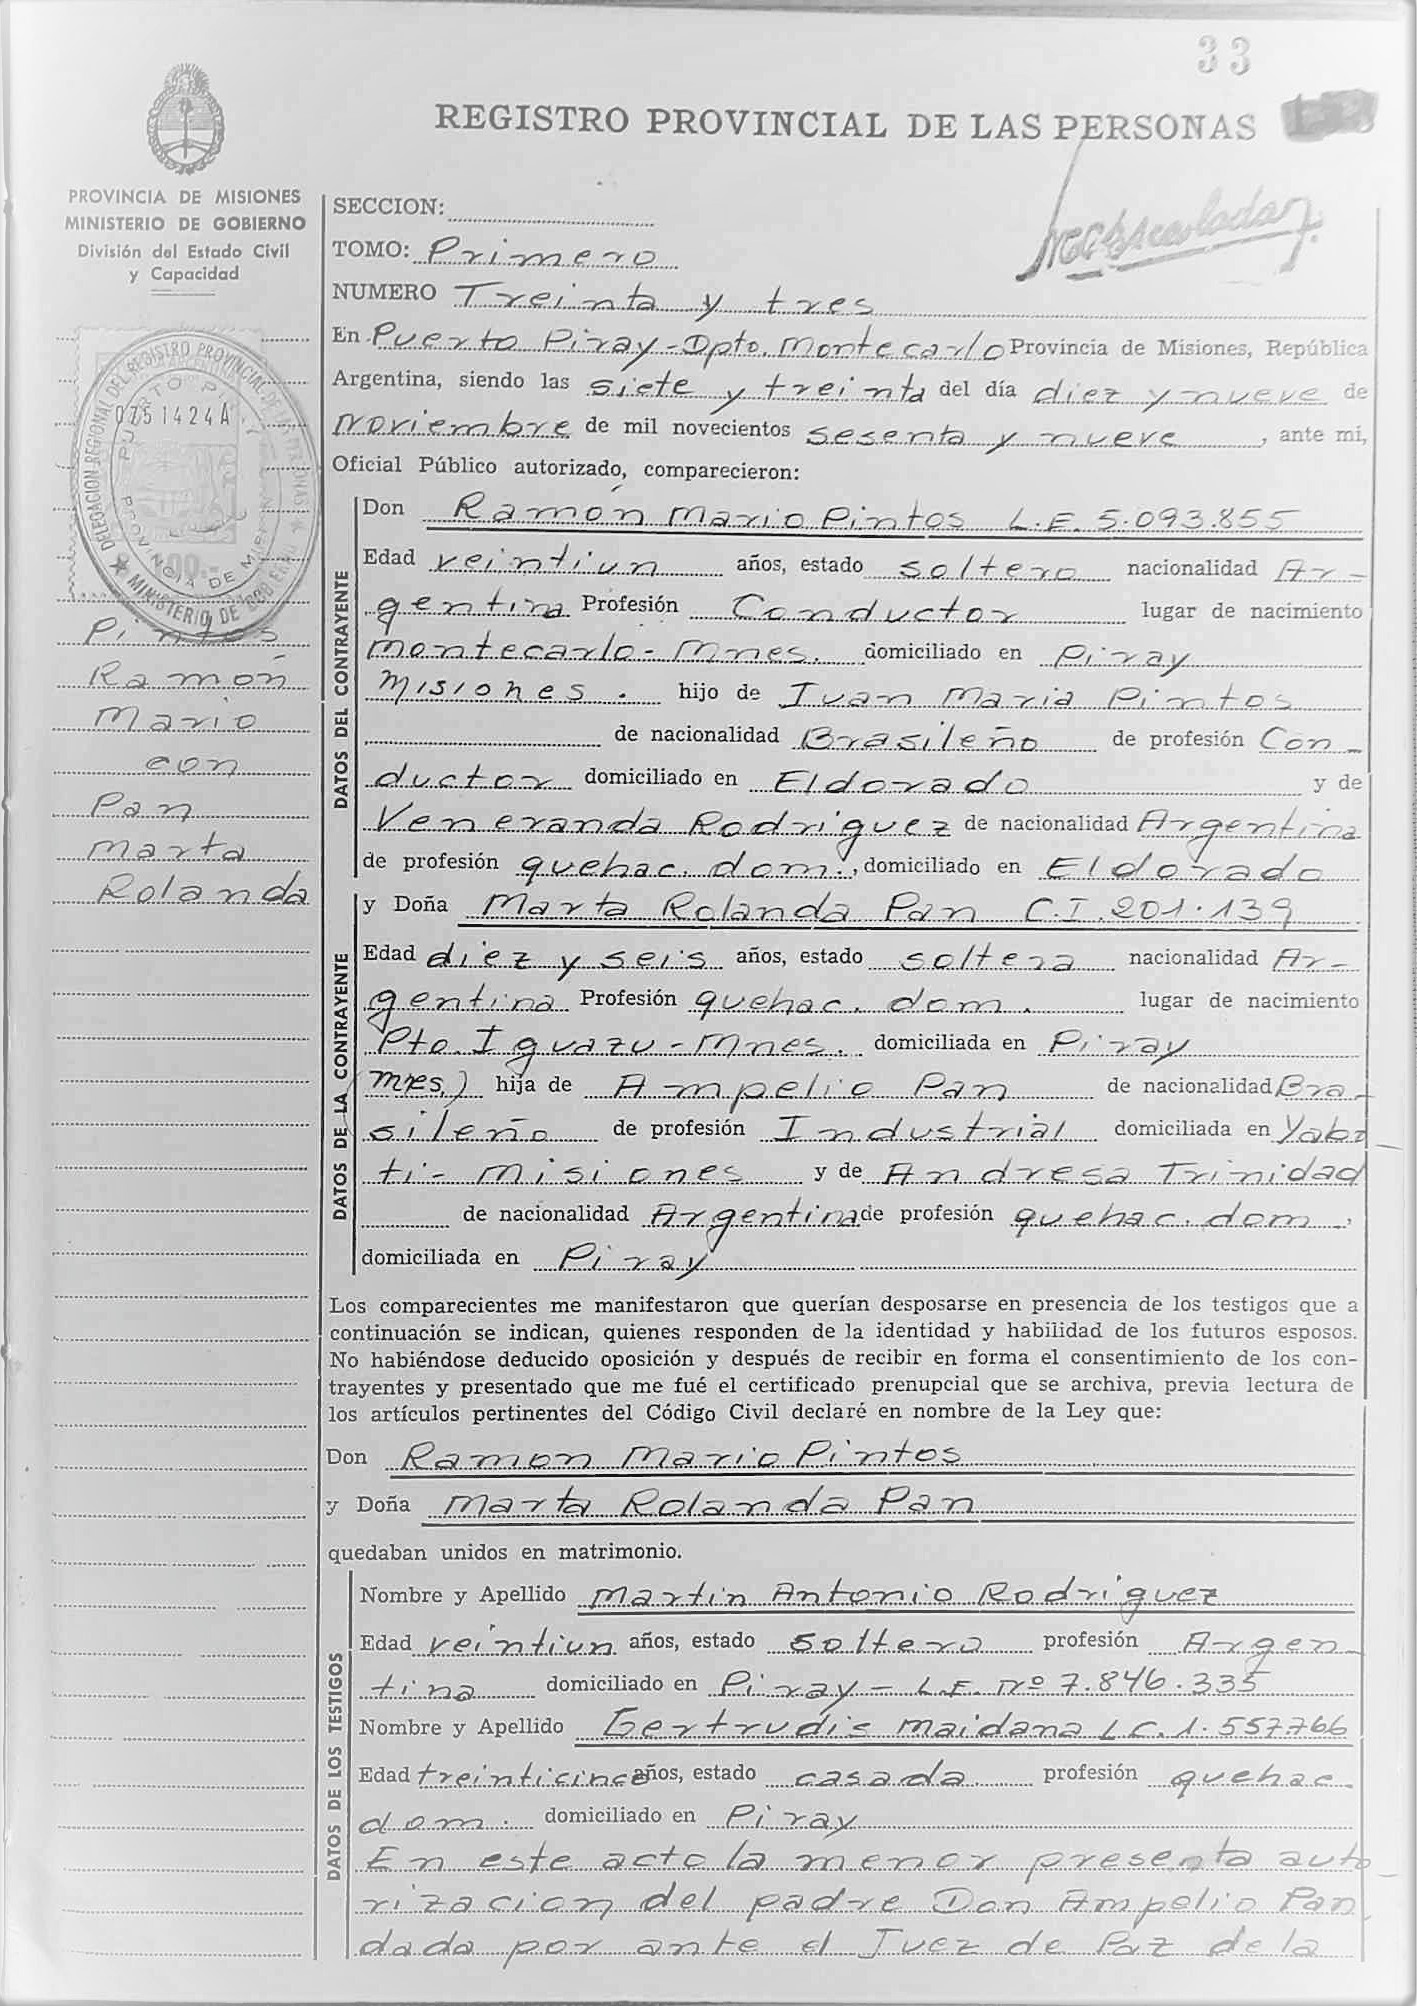 33
REGISTRO PROVINCIAL DE LAS PERSONAS
PROVINCIA DE MISIONES
MINISTERIO DE GOBIERNO
División del Estado Civil
y Capacidad
DELEGACION REGIONAL DEL REGISTRO PROVINCIAL DE LAS PERSONAS
MINISTERIO DE GOBIERNO
PROVINCIA DE MISIONES
0751424A
Pintos
Ramón
Mario
con
Pan
Marta
Rolanda
SECCION:
TOMO: Primero
NUMERO Treinta y tres
En Puerto Piray-Dpto. Montecarlo Provincia de Misiones, República
Argentina, siendo las siete y treinta del día diez y nueve de
Noviembre de mil novecientos sesenta y nueve, ante mi,
Oficial Público autorizado, comparecieron:
DATOS DEL CONTRAYENTE
Don Ramón Mario Pintos L.E. 5.093.855
Edad veintiun años, estado soltero nacionalidad Ar-
gentina Profesión Conductor lugar de nacimiento
Montecarlo-Mnes. domiciliado en Piray
Misiones. hijo de Ivan Maria Pintos
de nacionalidad Brasileño de profesión Con-
ductor domiciliado en Eldorado y de
Veneranda Rodriguez de nacionalidad Argentina
de profesión quehac. dom., domiciliado en Eldorado
DATOS DE LA CONTRAYENTE
y Doña Marta Rolanda Pan C.I. 201.139
Edad diez y seis años, estado soltera nacionalidad Ar-
gentina Profesión quehac. dom. lugar de nacimiento
Pto. Iguazu-Mnes. domiciliada en Piray
(Mnes.) hija de Ampelio Pan de nacionalidad Bra-
sileño de profesión Industrial domiciliada en Yabo-
ti- Misiones y de Andresa Trinidad
de nacionalidad Argentina de profesión quehac. dom.,
domiciliada en Piray
Los comparecientes me manifestaron que querían desposarse en presencia de los testigos que a
continuación se indican, quienes responden de la identidad y habilidad de los futuros esposos.
No habiéndose deducido oposición y después de recibir en forma el consentimiento de los con-
trayentes y presentado que me fué el certificado prenupcial que se archiva, previa lectura de
los artículos pertinentes del Código Civil declaré en nombre de la Ley que:
Don Ramon Mario Pintos
y Doña Marta Rolanda Pan
quedaban unidos en matrimonio.
DATOS DE LOS TESTIGOS
Nombre y Apellido Martin Antonio Rodriguez
Edad veintiun años, estado soltero profesión Argen-
tina domiciliado en Piray- L.E. Nº 7.846.335
Nombre y Apellido Gertrudis Maidana L.C. 1.557.766
Edad treinticinco años, estado casada profesión quehac.
dom. domiciliado en Piray
En este acto la menor presenta auto-
rizacion del padre Don Ampelio Pan,
dada por ante el Juez de Paz de la